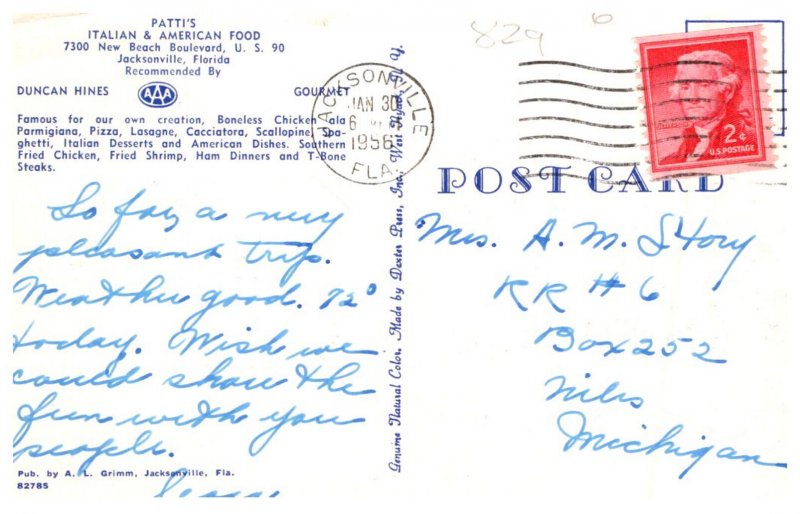 PATTI'S
ITALIAN & AMERICAN FOOD
7300 New Beach Boulevard, U. S. 90
Jacksonville, Florida
Recommended By
DUNCAN HINES AAA GOURMET
Famous for our own creation, Boneless Chicken ala
Parmigiana, Pizza, Lasagne, Cacciatora, Scallopine, Spa-
ghetti, Italian Desserts and American Dishes. Southern
Fried Chicken, Fried Shrimp, Ham Dinners and T-Bone
Steaks.
So far a very
pleasant trip.
Weather good. 72°
today. Wish we
could share the
fun with you
people.
Pub. by A. L. Grimm, Jacksonville, Fla.
82785
Genuine Natural Color, Made by Dexter Press, Inc., West Nyack, N. Y.
829
6
JACKSONVILLE
JAN 30
6
1956
FLA.
2¢
U.S. POSTAGE
POST CARD
Mrs. A. M. Story
RR # 6
Box 252
Niles
Michigan